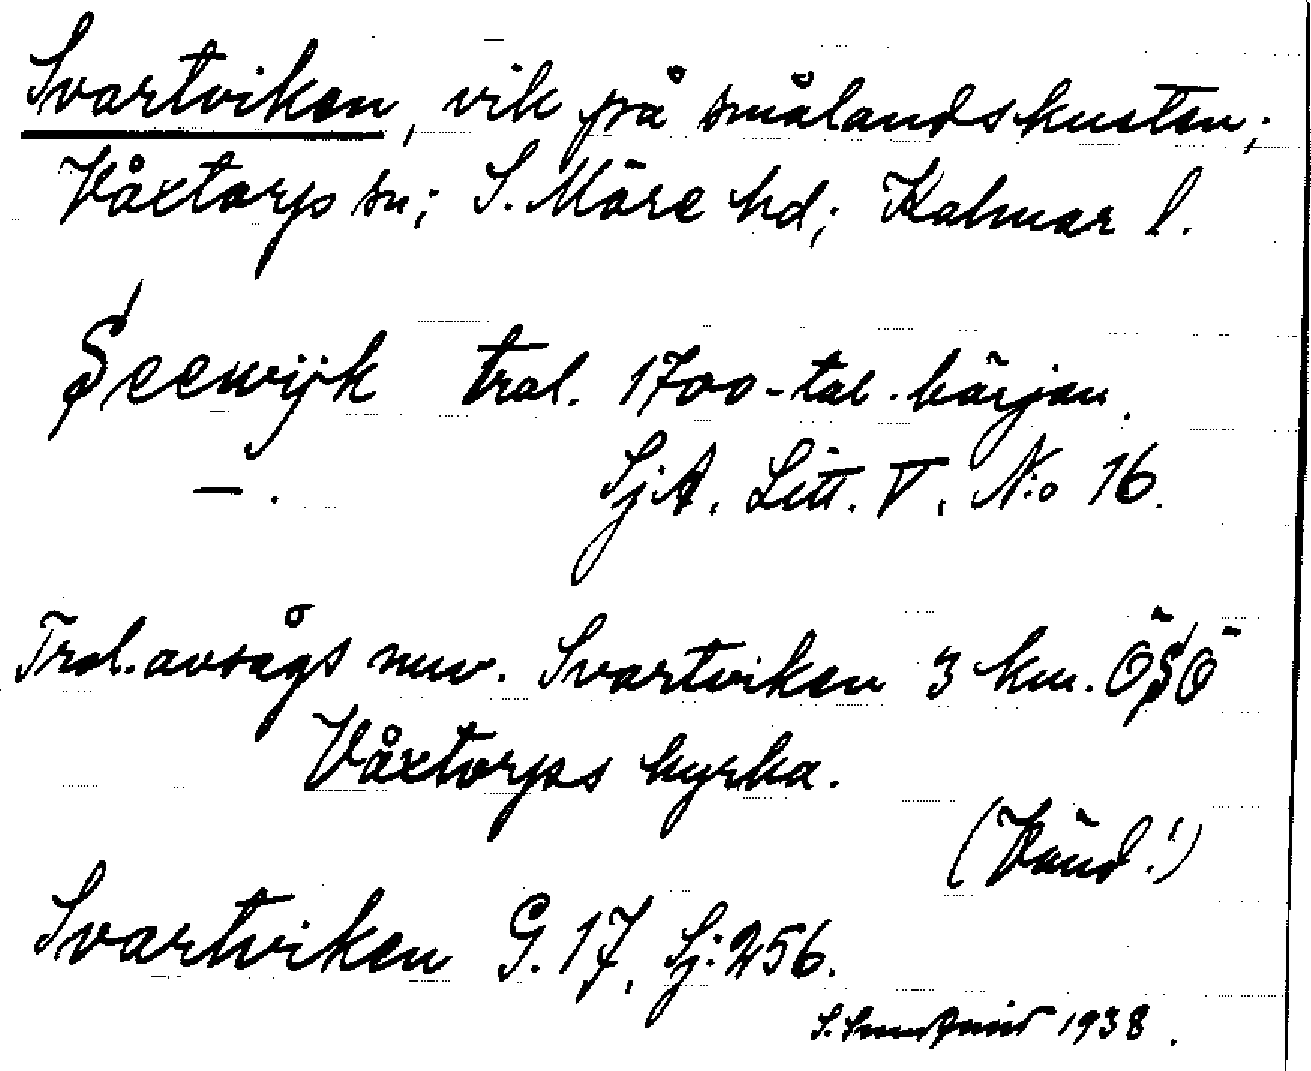 Svartviken, vik på smålandskusten;
Våxtorps sn; S. Möre hd; Kalmar l.
Seewijk trol. 1700-tal. början.
—. SjA. Litt. V. N:o 16.
Trol. avsågs nuv. Svartviken 3 km. ÖSÖ
Våxtorps kyrka.
(Vänd!)
Svartviken G. 17, Sj: 256.
1938.